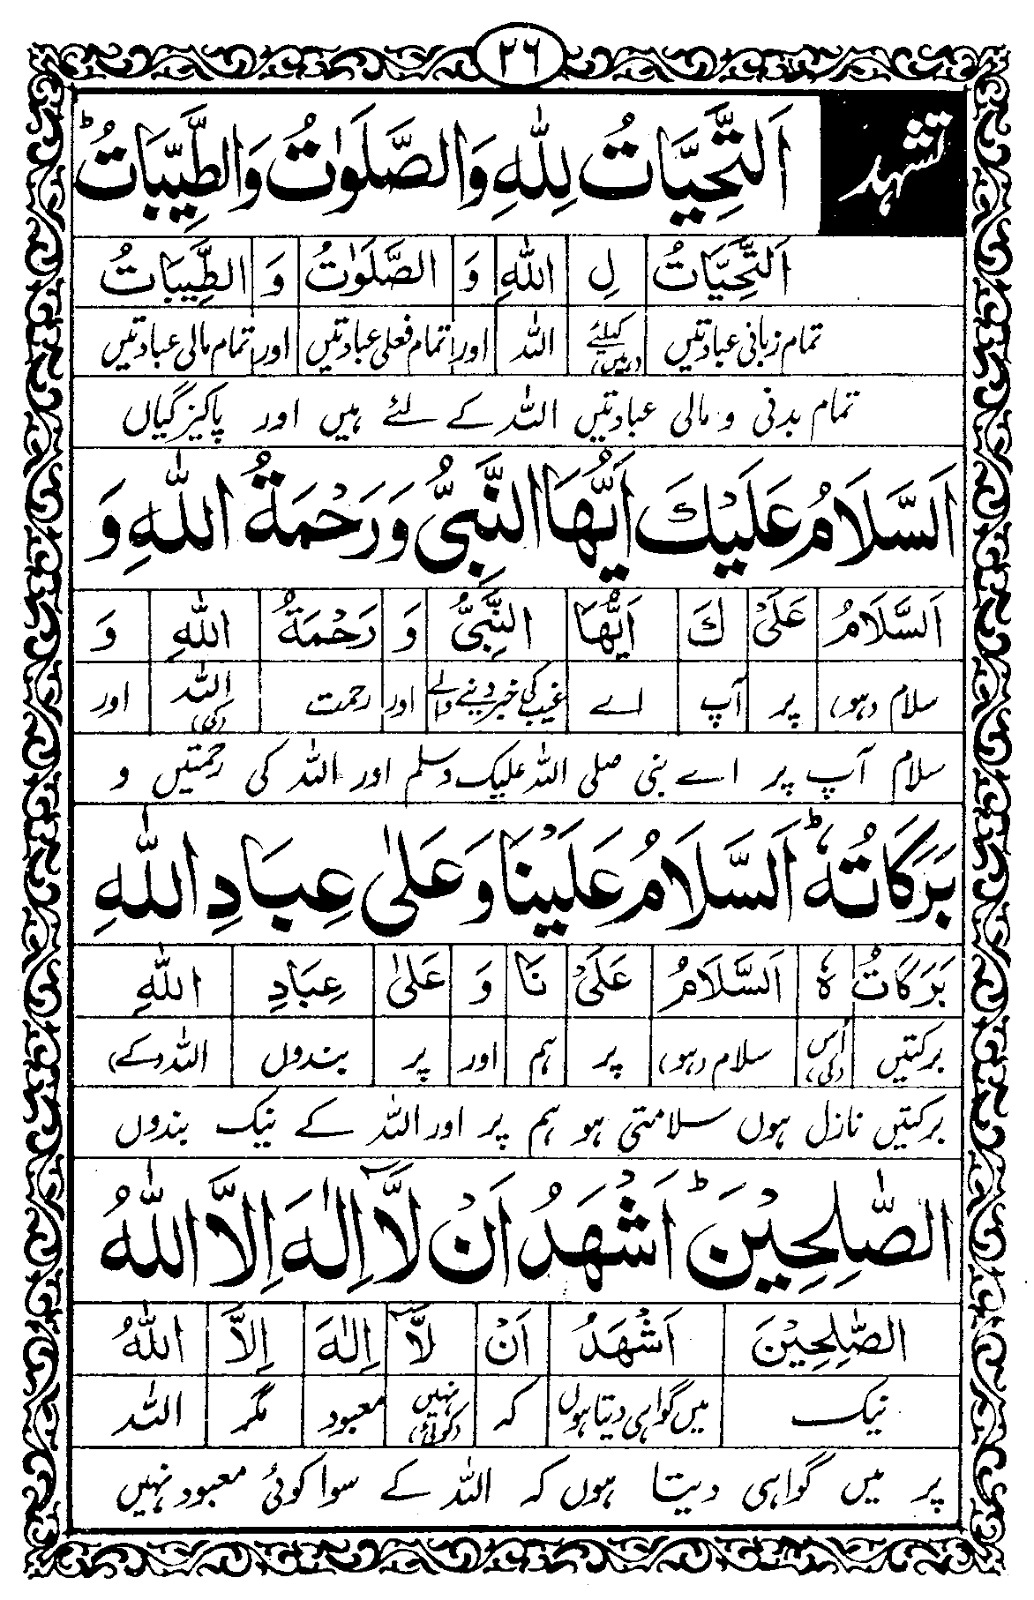 ۲۶
تشهد
اَلتَّحِيَّاتُ لِلّٰهِ وَالصَّلَوٰتُ وَالطَّيِّبَاتُ ؕ
اَلتَّحِيَّاتُ لِ اللّٰهِ وَ الصَّلَوٰتُ وَ الطَّيِّبَاتُ
تمام زبانی عبادتیں کیلئے (ہیں) اللہ اور تمام فعلی عبادتیں اور تمام مالی عبادتیں
تمام بدنی و مالی عبادتیں اللہ کے لئے ہیں اور پاکیزگیاں
اَلسَّلَامُ عَلَيْكَ اَيُّهَا النَّبِيُّ وَرَحْمَةُ اللّٰهِ وَ
اَلسَّلَامُ عَلَيْ كَ اَيُّهَا النَّبِيُّ وَ رَحْمَةُ اللّٰهِ وَ
سلام (ہو) پر آپ اے غیب کی خبر دینے والے اور رحمت اللہ (کی) اور
سلام آپ پر اے نبی صلی اللہ علیک وسلم اور اللہ کی رحمتیں و
بَرَكَاتُهٗ ؕ اَلسَّلَامُ عَلَيْنَا وَ عَلٰى عِبَادِ اللّٰهِ
بَرَكَاتُ هٗ اَلسَّلَامُ عَلَيْ نَا وَ عَلٰى عِبَادِ اللّٰهِ
برکتیں اُس (کی) سلام (ہو) پر ہم اور پر بندوں اللہ (کے)
برکتیں نازل ہوں سلامتی ہو ہم پر اور اللہ کے نیک بندوں
الصّٰلِحِيْنَ ؕ اَشْهَدُ اَنْ لَّاۤ اِلٰهَ اِلَّا اللّٰهُ
الصّٰلِحِيْنَ اَشْهَدُ اَنْ لَّاۤ اِلٰهَ اِلَّا اللّٰهُ
نیک میں گواہی دیتا ہوں کہ نہیں (کوئی) معبود مگر اللہ
پر میں گواہی دیتا ہوں کہ اللہ کے سوا کوئی معبود نہیں